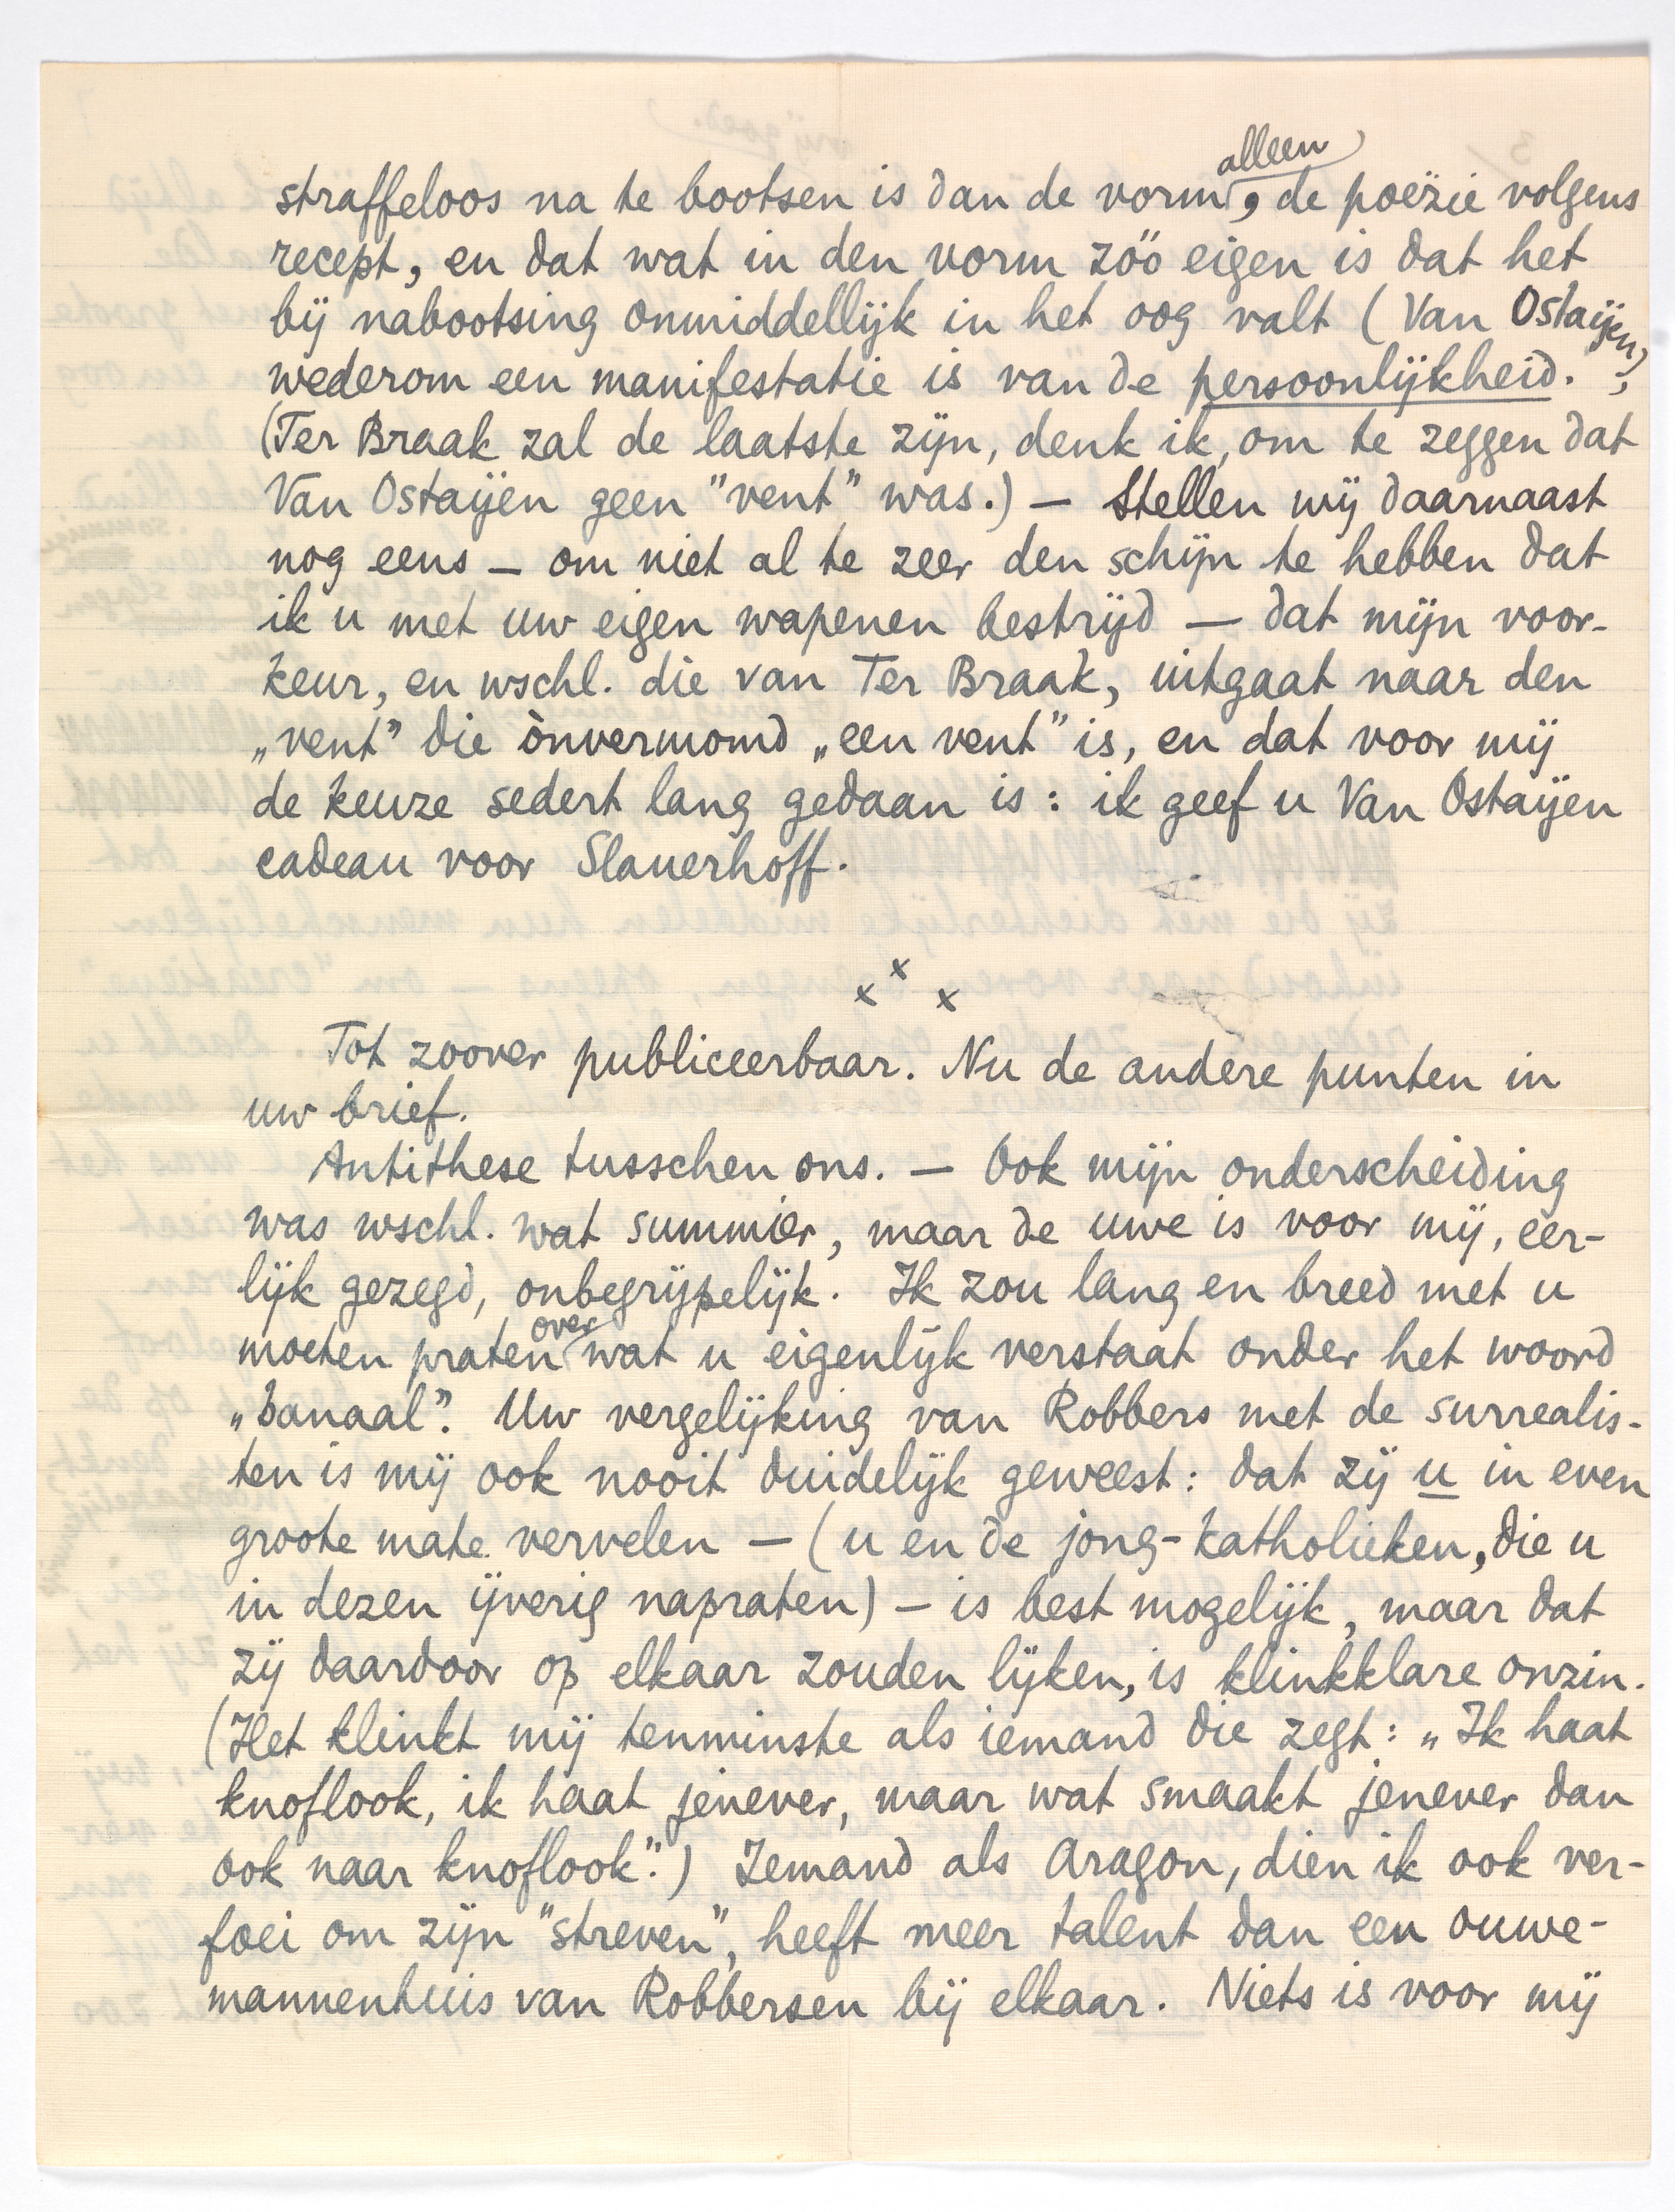 straffeloos na te bootsen is dan de vorm alleen, de poëzie volgens
recept, en dat wat in den vorm zóó eigen is dat het
bij nabootsing onmiddellijk in het oog valt (Van Ostaijen),
wederom een manifestatie is van de persoonlijkheid.
(Ter Braak zal de laatste zijn, denk ik, om te zeggen dat
Van Ostaijen geen "vent" was.) — Stellen wij daarnaast
nog eens — om niet al te zeer den schijn te hebben dat
ik u met uw eigen wapenen bestrijd — dat mijn voor-
keur, en wschl. die van Ter Braak, uitgaat naar den
„vent" die ònvermomd „een vent" is, en dat voor mij
de keuze sedert lang gedaan is: ik geef u Van Ostaijen
cadeau voor Slauerhoff.
x x x
Tot zoover publiceerbaar. Nu de andere punten in
uw brief.
Antithese tusschen ons. — Ook mijn onderscheiding
was wschl. wat summier, maar de uwe is voor mij, eer-
lijk gezegd, onbegrijpelijk. Ik zou lang en breed met u
moeten praten over wat u eigenlijk verstaat onder het woord
„banaal". Uw vergelijking van Robbers met de surrealis-
ten is mij ook nooit duidelijk geweest: dat zij u in even
groote mate vervelen — (u en de jong-katholieken, die u
in dezen ijverig napraten) — is best mogelijk, maar dat
zij daardoor op elkaar zouden lijken, is klinkklare onzin.
(Het klinkt mij tenminste als iemand die zegt: „Ik haat
knoflook, ik haat jenever, maar wat smaakt jenever dan
ook naar knoflook".) Iemand als Aragon, dien ik ook ver-
foei om zijn "streven", heeft meer talent dan een ouwe-
mannenhuis van Robbersen bij elkaar. Niets is voor mij